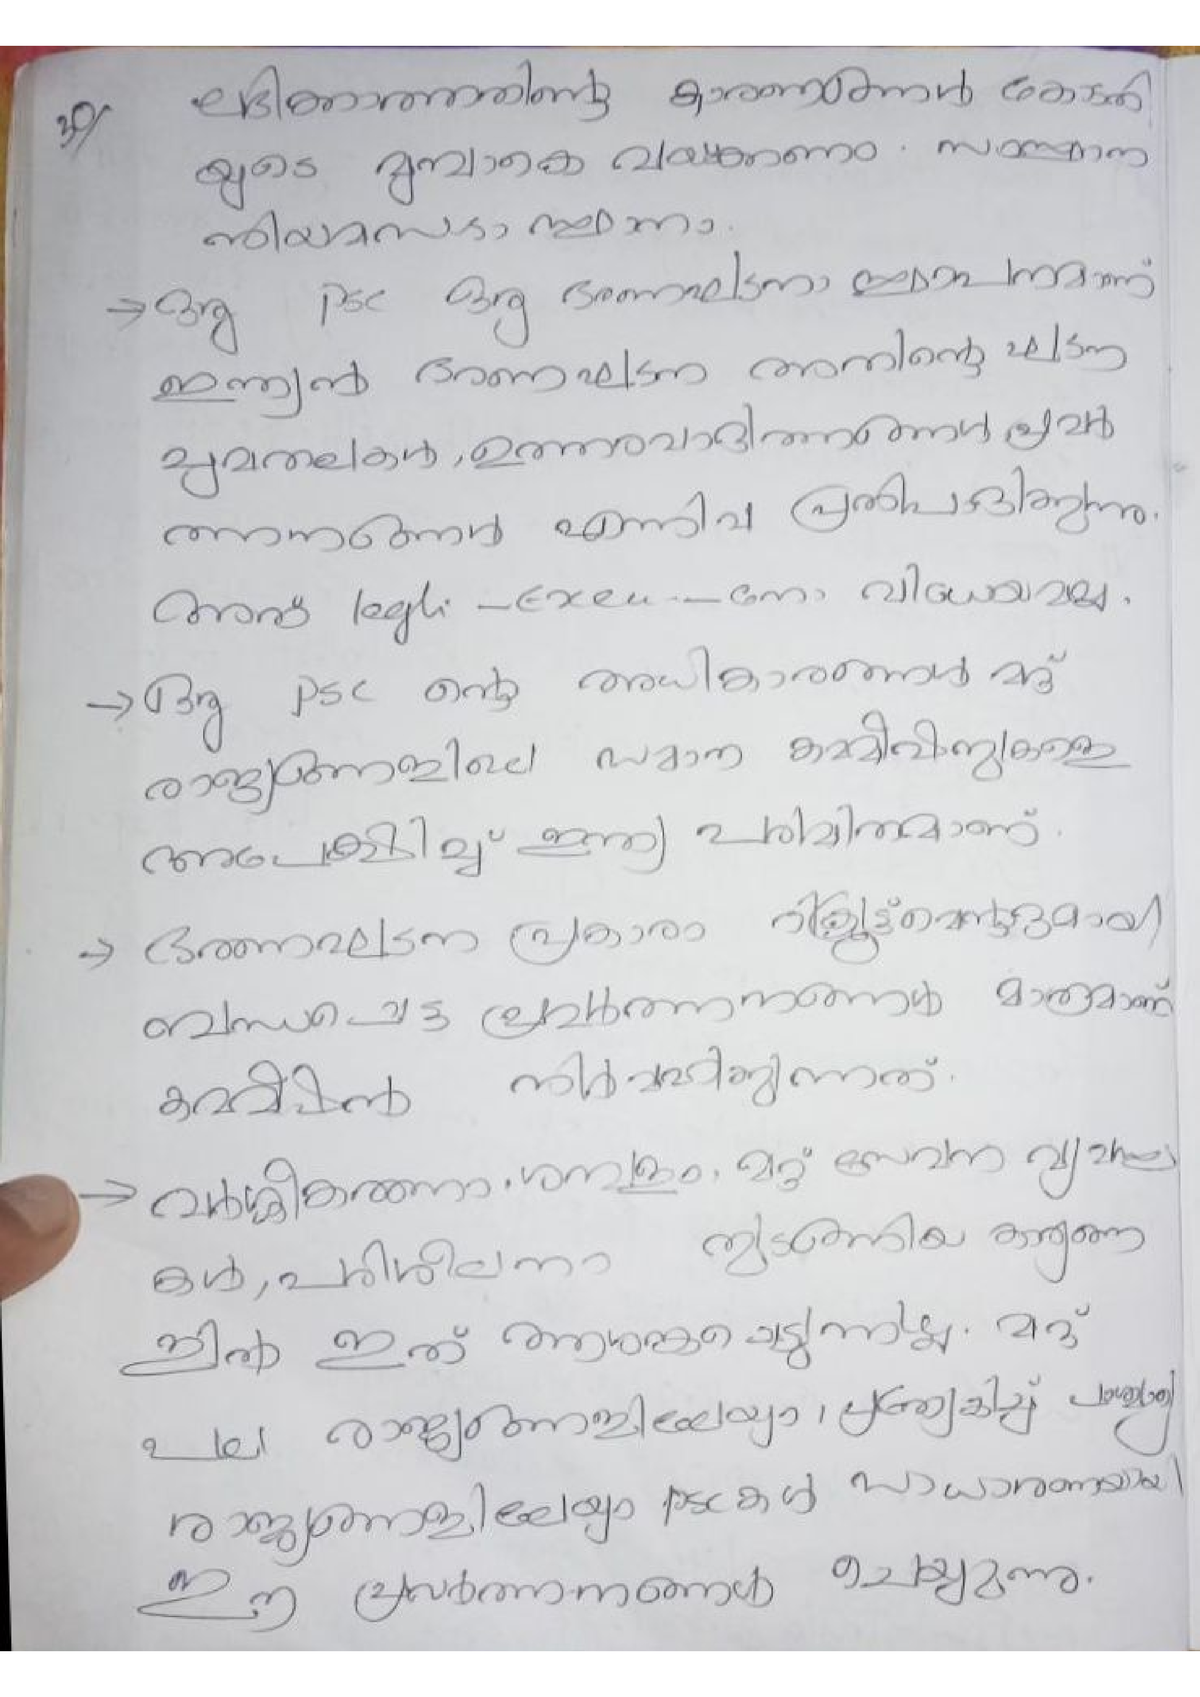 30/
ലഭിക്കാത്തതിന്റെ കാരണങ്ങൾ കോടതി
യുടെ മുമ്പാകെ വയ്ക്കണം. സംസ്ഥാന
നിയമസഭാ സ്ഥാനം.
→ ഒരു PSC ഒരു ഭരണഘടനാ സ്ഥാപനമാണ്
ഇന്ത്യൻ ഭരണഘടന അതിന്റെ ഘടന
ചുമതലകൾ, ഉത്തരവാദിത്തങ്ങൾ പ്രവർ
ത്തനങ്ങൾ എന്നിവ പ്രതിപാദിക്കുന്നു.
അത് legli - Execu - നോ വിധേയമല്ല.
→ ഒരു PSC ന്റെ അധികാരങ്ങൾ മറ്റ്
രാജ്യങ്ങളിലെ സമാന കമ്മീഷനുകളെ
അപേക്ഷിച്ച് ഇന്ത്യ പരിമിതമാണ്.
→ ഭരണഘടന പ്രകാരം റിക്രൂട്ട്മെന്റുമായി
ബന്ധപ്പെട്ട പ്രവർത്തനങ്ങൾ മാത്രമാണ്
കമ്മീഷൻ നിർവഹിക്കുന്നത്.
→ വർഗ്ഗീകരണം, ശമ്പളം, മറ്റ് സേവന വ്യവസ്ഥ
കൾ, പരിശീലനം തുടങ്ങിയ കാര്യങ്ങ
ളിൽ ഇത് ആശങ്കപ്പെടുന്നില്ല. മറ്റ്
പല രാജ്യങ്ങളിലേയും, പ്രത്യേകിച്ച് പാശ്ചാത്യ
രാജ്യങ്ങളിലേയും PSC കൾ സാധാരണയായി
ഈ പ്രവർത്തനങ്ങൾ ചെയ്യുന്നു.